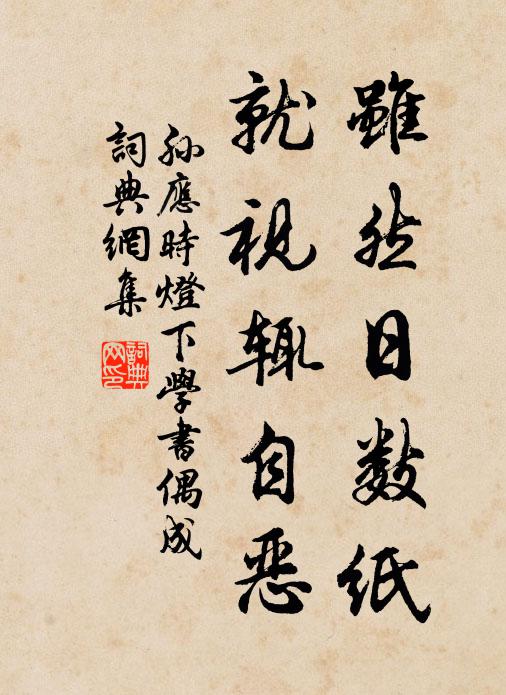 雖然日數紙
就視輒自惡
孫應時燈下學書偶成
詞典網集
詞典網印